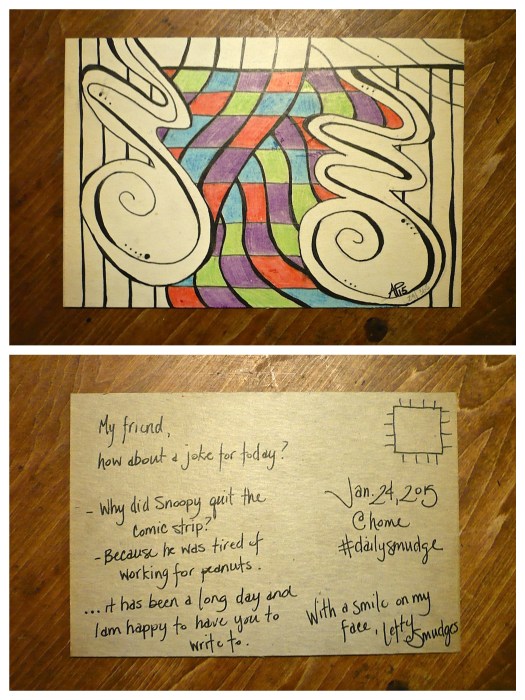 AP15
My friend,
how about a joke for today?
- Why did Snoopy quit the
comic strip?
- Because he was tired of
working for peanuts.
...it has been a long day and
I am happy to have you to
write to.
Jan. 24, 2015
@home
#dailysmudge
With a smile on my
face, Lefty
Smudges